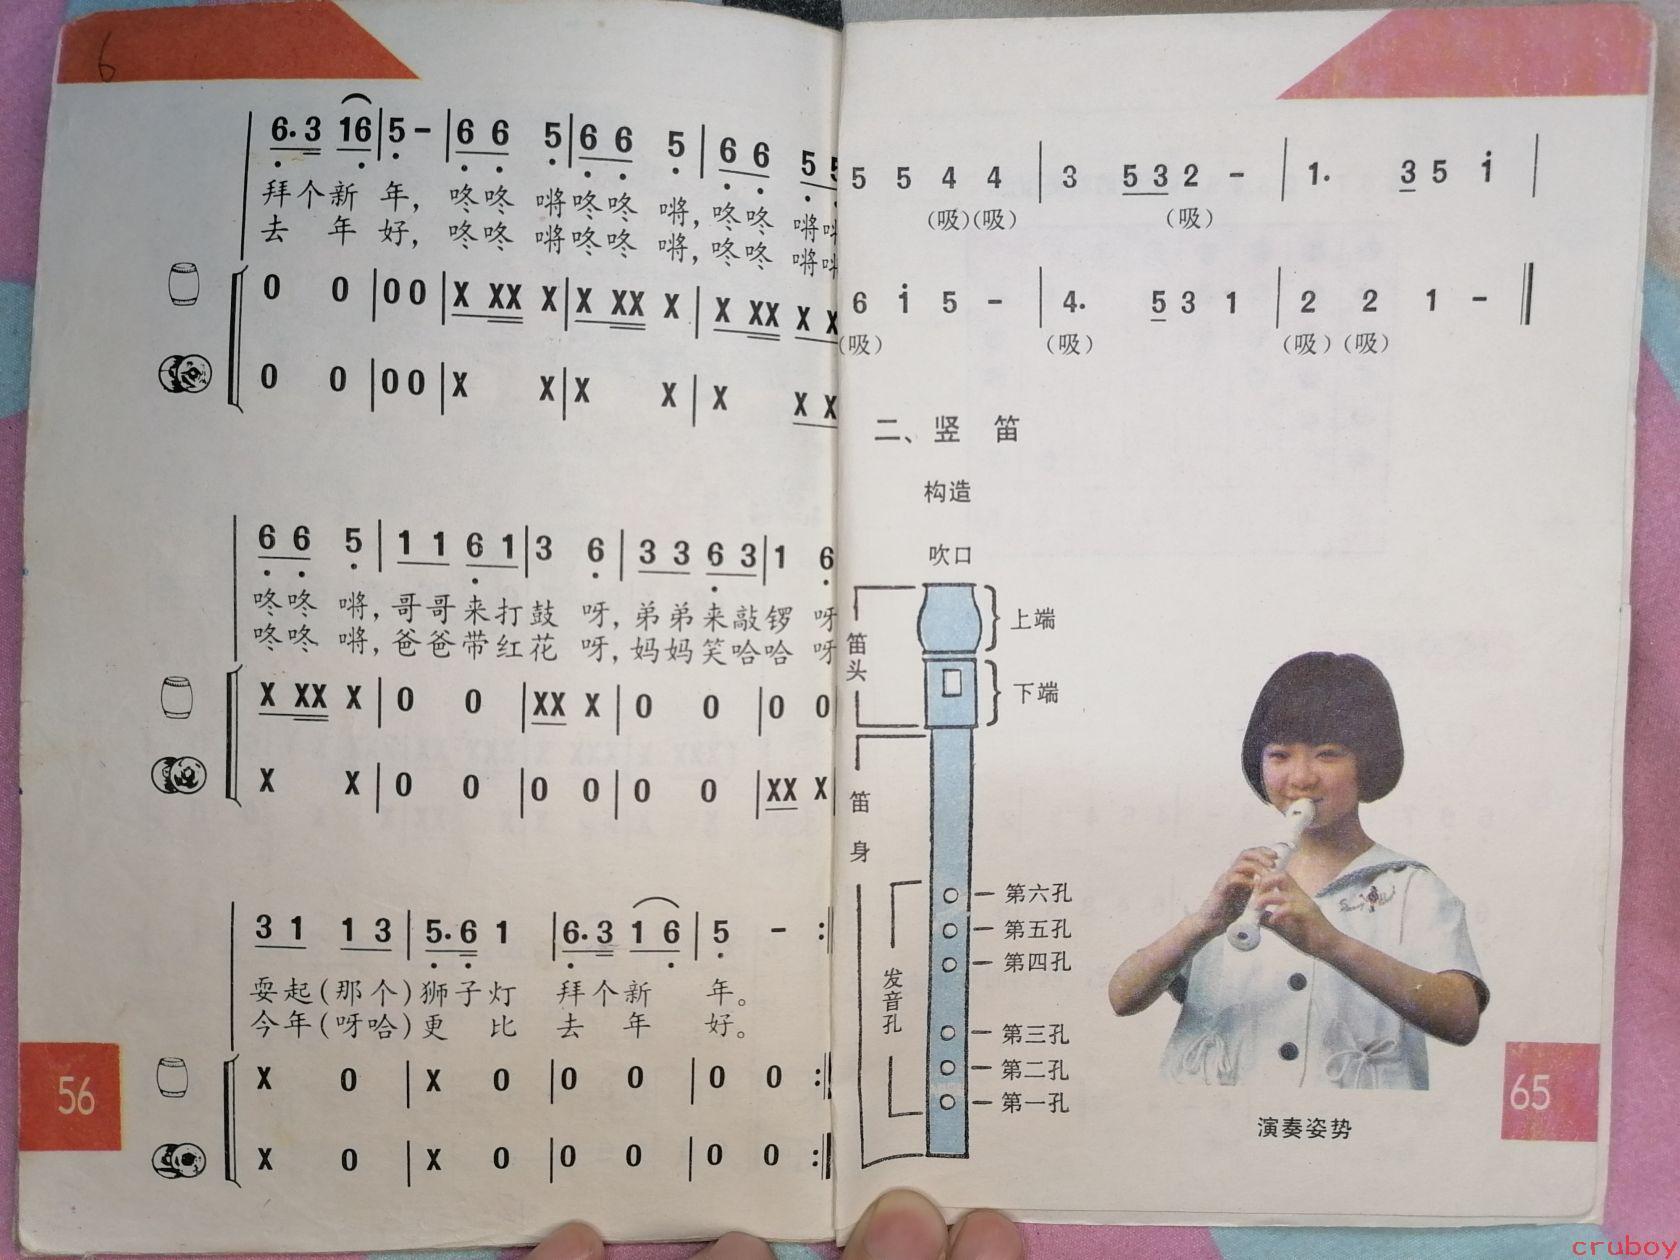 6
6. 3 16 | 5 – | 6 6 5 | 6 6 5 | 6 6 5 5
拜个新 年，咚咚 锵咚咚 锵，咚咚 锵
去 年 好，咚咚 锵咚咚 锵，咚咚 锵
0 0 | 0 0 | X XX X | X XX X | X XX X X
0 0 | 0 0 | X X | X X | X X X
6 6 5 | 1 1 6 1 | 3 6 | 3 3 6 3 | 1 6
咚咚 锵，哥哥来打鼓 呀，弟弟来敲锣 呀
咚咚 锵，爸爸带红花 呀，妈妈笑哈哈 呀
X XX X | 0 0 | XX X | 0 0 | 0 0
X X | 0 0 | 0 0 | 0 0 | XX X
3 1 1 3 | 5. 6 1 | 6. 3 1 6 | 5 – :‖
耍起(那个)狮子灯 拜个新 年。
今年(呀哈)更 比 去 年 好。
X 0 | X 0 | 0 0 | 0 0 :‖
X 0 | X 0 | 0 0 | 0 0 :‖
56
5 5 4 4 | 3 5 3 2 – | 1. 3 5 i |
(吸)(吸) (吸)
6 i 5 – | 4. 5 3 1 | 2 2 1 – ‖
(吸) (吸) (吸)(吸)
二、竖 笛
构造
吹口
上端
笛头
下端
笛身
第六孔
第五孔
第四孔
发音孔
第三孔
第二孔
第一孔
演奏姿势
65
cruboy